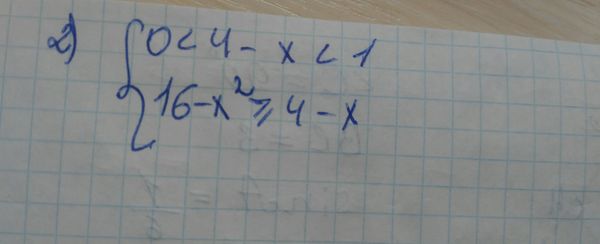 2) { 0 < 4 - x < 1
16 - x² ⩾ 4 - x